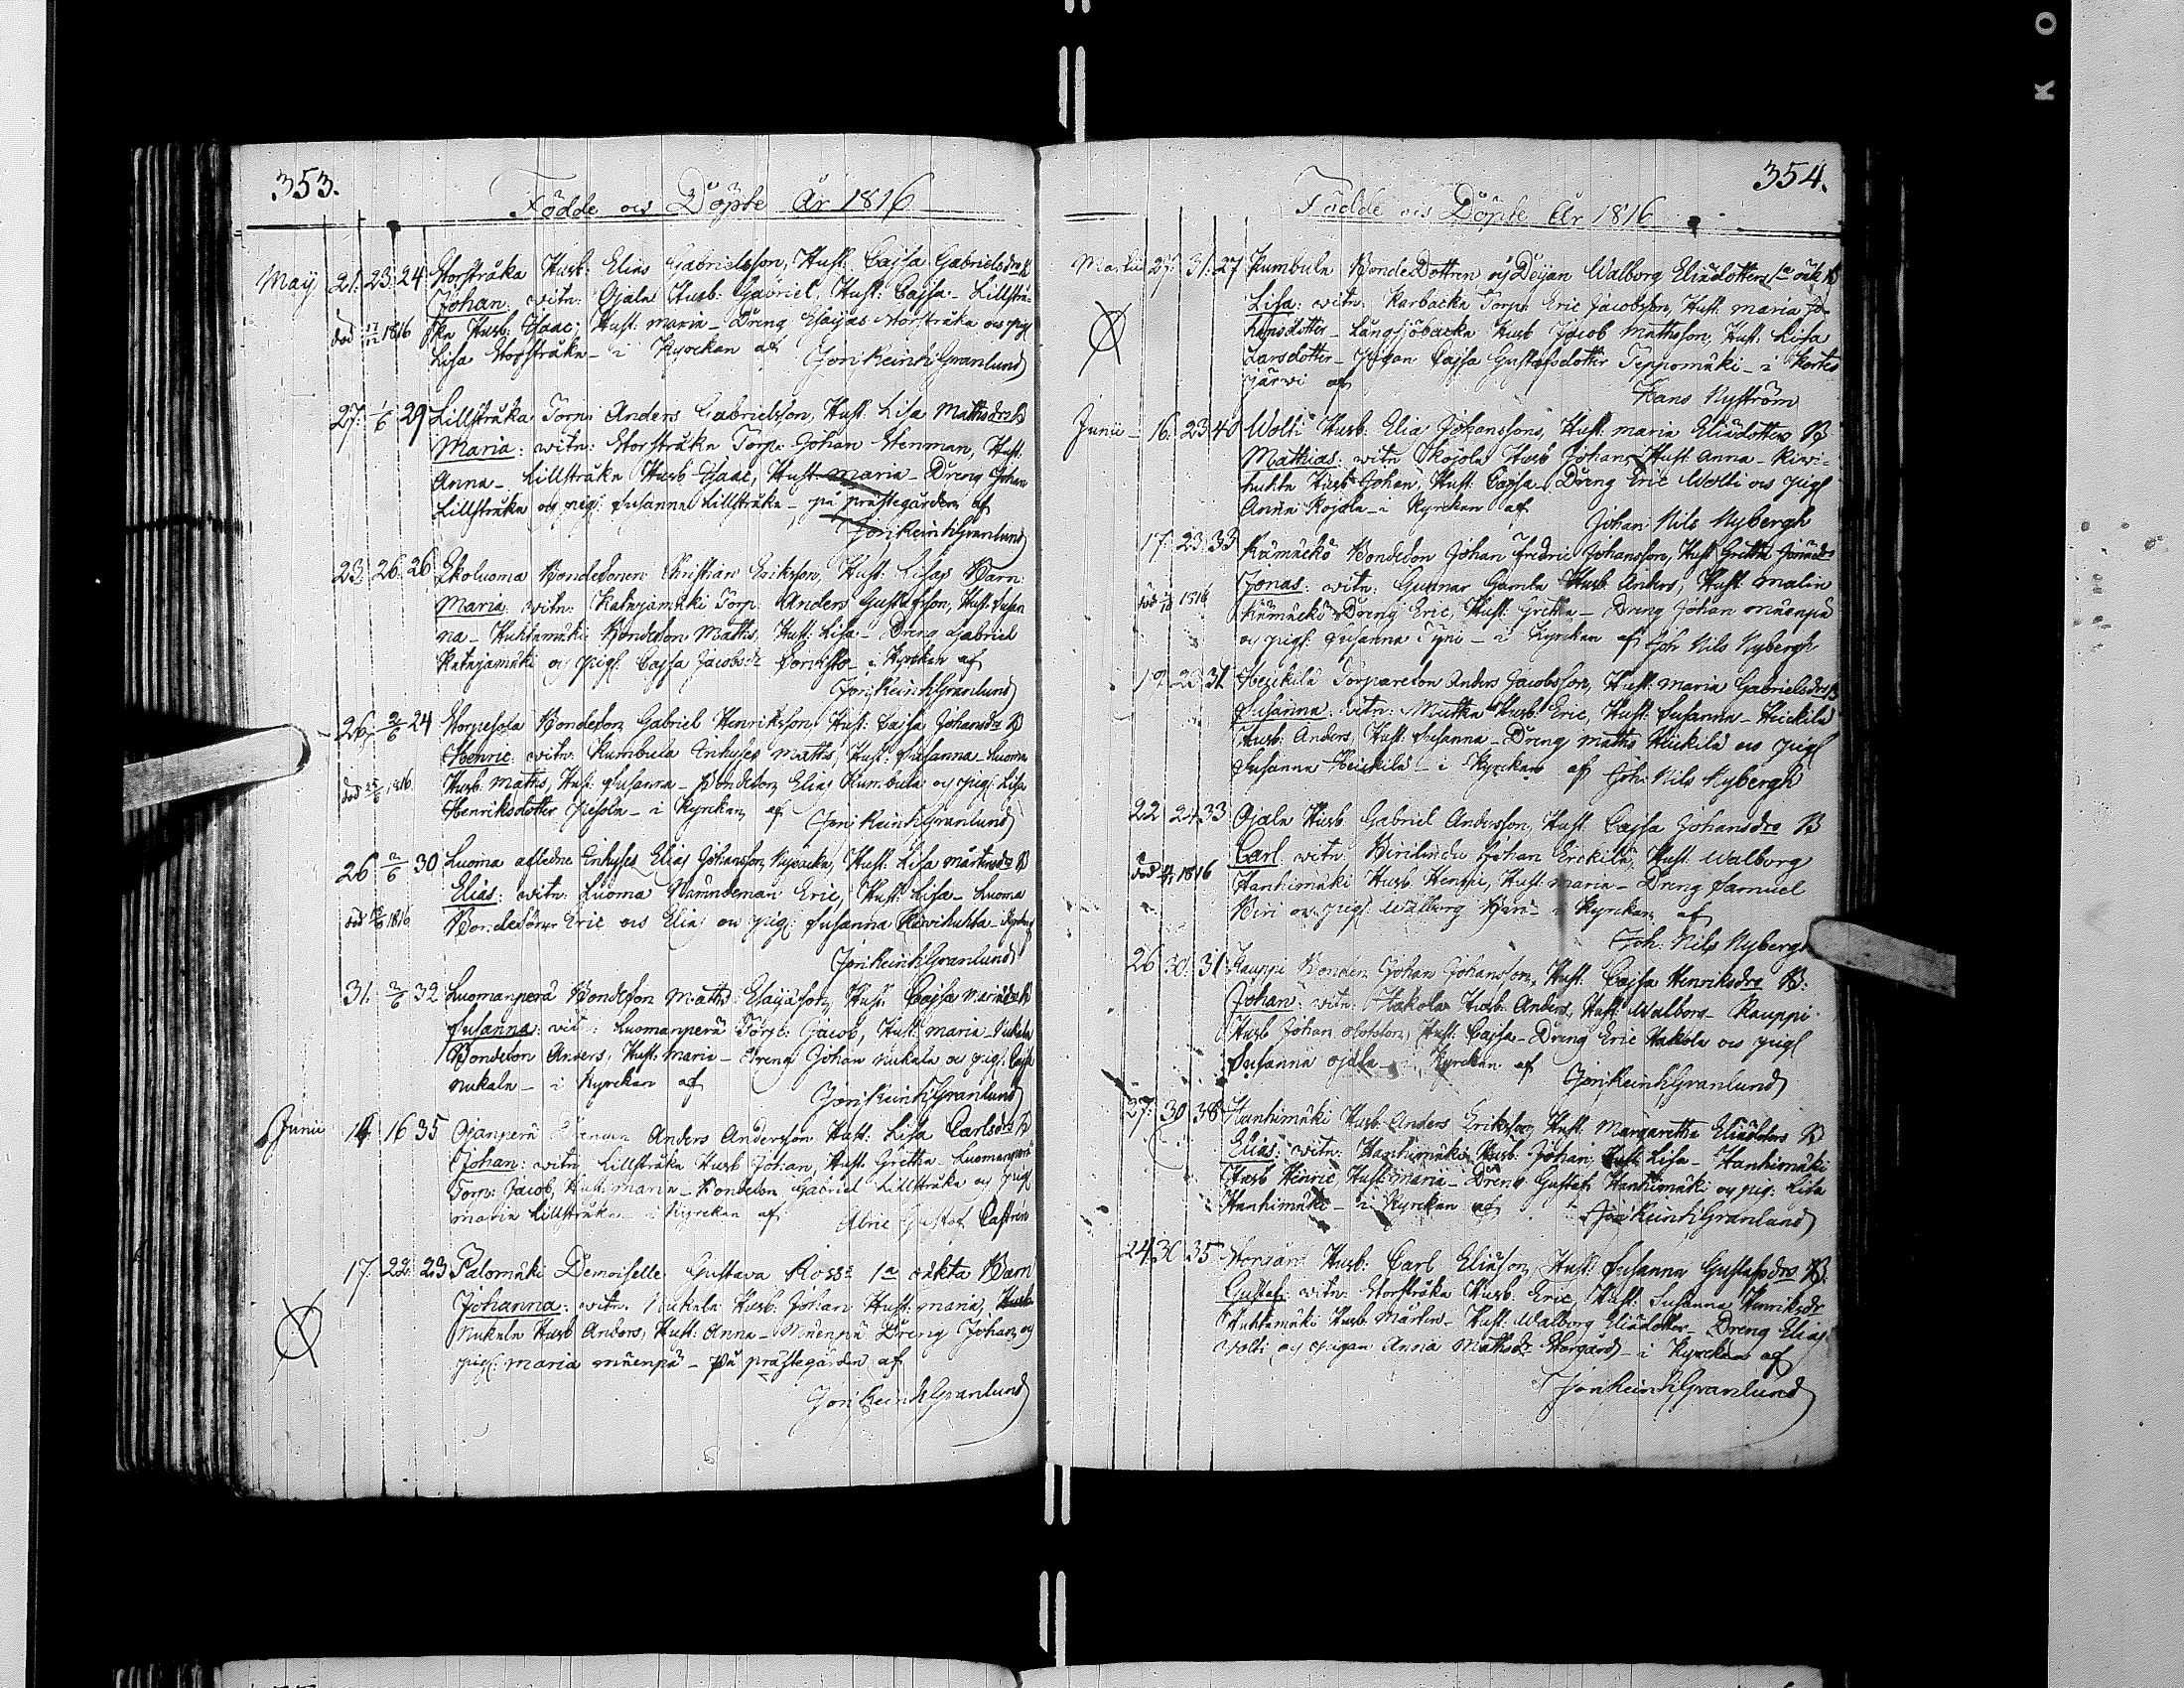 353.
Födde och Döpte År 1816
Maÿ 21. 23. 24. Storstråka Husb: Elias Gabrielsson, Hust: Cajsa Gabrielsdr B
Johan: witn: Ojala Husb: Gabriel, Hust: Cajsa - Lillstrå-
död 17/12 1816 ka Husb: Isaac, Hust: Maria - Dreng Esaijas Storstråka och pig:
Lisa Storstråka - i Kyrckan af Jon: Reinh: Granlund
27. 1/6 29 Lillstråka Torp: Anders Gabrielsson, Hust: Lisa Mattsdr B
Maria: witn: Storstråka Torp: Johan Stenman, Hust:
Anna - Lillstråka Husb Isaac, Hust maria - Dreng Johan
Lillstråka och pig: Susanna Lillstråka - på prästegården af
Jon: Reinh: Granlund
23. 26. 26 Ekoluoma Bondesonen Christian Eriksson, Hust: Lisas Barn:
Maria: witn: Katajamäki Torp: Anders Gustafsson, Hust: Susan
na - Huhtamäki Bondeson Matts, Hust: Lisa - Dreng Gabriel
Katajamäki och pig: Cajsa Jacobsdr - i Kyrckan af
Jon: Reinh: Granlund
26. 2/6 24 Storpesola Bondeson Gabriel Henriksson, Hust: Cajsa Johansdr B
Henric: witn: Kumbula Inhyses Matts, Hust: Susanna - Luoma
död 25/6 1816 Husb: Matts, Hust: Susanna - Bondeson Elias Kumbula och pig: Lisa
Henriksdotter Pesola - i Kyrckan af Jon: Reinh: Granlund
26 2/6 30 Luoma afledne Inhyses Elias Johansson Nybacka, Hust: Lisa Mårtensdr B
Elias: witn: Luoma Nämndeman Eric, Hust: Lisa - Luoma
död 1816 Bondesöner Eric och Elias och pig: Susanna Kivihuhta -
Jon: Reinh: Granlund
31. 3/6 32 Luomanperä Bondeson Matts Esaijasson, Hust: Cajsa
Susanna: wit: Luomanperä Torp: Jacob, Hust: Maria - Nukala
Bondeson Anders, Hust: maria - Dreng Johan Nukala och pig: Cajsa
Nukala - i Kyrckan af Jon: Reinh: Granlund
Junii 14 16 35 Ojanperä Anders Andersson Hust: Lisa Carlsdr B
Johan: witn: Lillstråka Husb Johan, Hust: Gretha - Luomanperä
Torp: Jacob, Hust: maria - Bondeson Gabriel Lillstråka och pig:
maria Lillstråka - i Kyrckan af Alric Gustaf Castrén
17. 22. 23 Palomäki Demoiselle Gustava Ross: 1a oäkta Barn
Johanna: witn: Nukala Husb: Johan Hust: maria,
Nukala Husb Anders, Hust: Anna - Mäenpä Dreng Johan och
pig: maria mäenpä - på prästegården af
Jon: Reinh: Granlund
354.
Födde och Döpte År 1816
27. 31. 27. Kumbula BondeDottren och Deijan Walborg Eliædotters 1a oäk B
Lisa: witn: Karbacka Torp: Eric Jacobsson, Hust: maria Jo-
hansdotter - Långsjöbacka Husb Jacob Mattsson, Hust: Lisa
Larsdotter - Pigan Cajsa Gustafsdotter Teppomäki - i Kortes
järvi af
Hans Nyström
Junii - 16. 23 40 Wolti Husb: Elia Johanssons, Hust: maria Eliædotters B
Mathias: witn: Skojola Husb Johan, Hust: Anna - Kivi-
huhta Husb Johan, Hust: Cajsa - Dreng Eric Wolti och pig:
Anna Kojola - i Kyrckan af Johan Nils Nybergh
17. 23 33 Kämäckö Bondeson Johan Fredric Johansson, Hust Gretha
Jonas: witn: Gunnar Gamla Husb Anders, Hust: Malin
död 1816 Kämäckö Dreng Eric, Hust: Gretha - Dreng Johan mäenpä
och pig: Susanna Tyni - i Kyrckan af Joh Nils Nybergh
19. 23 31 Heickilä Torpareson Anders Jacobsson, Hust: maria Gabrielsdrs B
Susanna: witn: Mutka Husb: Eric, Hust: Susanna - Heickilä
Husb: Anders, Hust: Susanna - Dreng Matts Heickilä och pig:
Susanna Heickilä - i Kyrckan af Joh: Nils Nybergh
22 24 33 Ojala Husb Gabriel Andersson, Hust: Cajsa Johansdrs B
Carl: witn: Johan Erckilä, Hust: Walborg
död 1816 Hanhimäki Husb: Henric, Hust: maria - Dreng Samuel
Biri och pig: Walborg Biri - i Kyrckan af
Joh: Nils Nybergh
26 30. 31 Kauppi Bonden Johan Johansson, Hust: Cajsa Henriksdrs B:
Johan: witn: Hakola Husb: Anders, Hust: Walborg - Kauppi
Husb Johan, Hust: Cajsa - Dreng Eric Hakola och pig:
Susanna Ojala - i Kyrckan af Jon: Reinh: Granlund
27: 30 38 Hanhimäki Husb: Anders Eriksson, Hust: Margaretha Eliædotters B
Elias: witn: Hanhimäki Husb: Johan, Hust: Lisa - Hanhimäki
Husb Henric, Hust: maria - Dreng Gustaf Hanhimäki och pig: Lisa
Hanhimäki - i Kyrckan af Jon: Reinh: Granlund
24 30 35 Storgård Husb: Carl Eliæson, Hust: Susanna Gustafsdrs B:
Gustaf: witn: Storstråka Husb: Eric, Hust: Susanna Henriksdr
Huhtamäki Husb: Mårten - Hust: Walborg Eliædotter - Dreng Elias
Wolti och pigan Anna Mattsdr Storgård - i Kyrckan af
Jon: Reinh: Granlund
K O